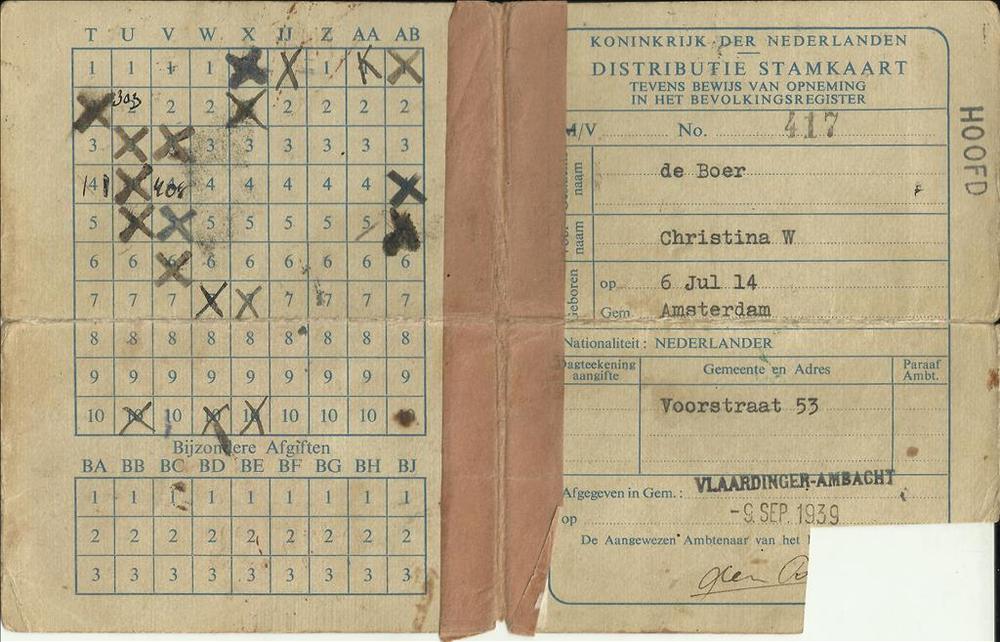 T U V W X IJ Z AA AB
1 1 1 1 1
303 2 2 2 2 2 2 2
3 3 3 3 3 3 3
4 408 4 4 4 4 4
5 5 5 5 5 5
6 6 6 6 6 6 6 6
7 7 7 7 7 7 7
8 8 8 8 8 8 8 8 8
9 9 9 9 9 9 9 9 9
10 10 10 10 10 10 10 10 10
Bijzondere Afgiften
BA BB BC BD BE BF BG BH BJ
1 1 1 1 1 1 1 1 1
2 2 2 2 2 2 2 2 2
3 3 3 3 3 3 3 3 3
KONINKRIJK DER NEDERLANDEN
DISTRIBUTIE STAMKAART
TEVENS BEWIJS VAN OPNEMING
IN HET BEVOLKINGSREGISTER
M/V No. 417
HOOFD
naam de Boer
naam Christina W
Geboren op 6 Jul 14
Gem Amsterdam
Nationaliteit: NEDERLANDER
Dagteekening aangifte
Gemeente en Adres
Paraaf Ambt.
Voorstraat 53
Afgegeven in Gem.: VLAARDINGER-AMBACHT
op -9 SEP. 1939
De Aangewezen Ambtenaar van het